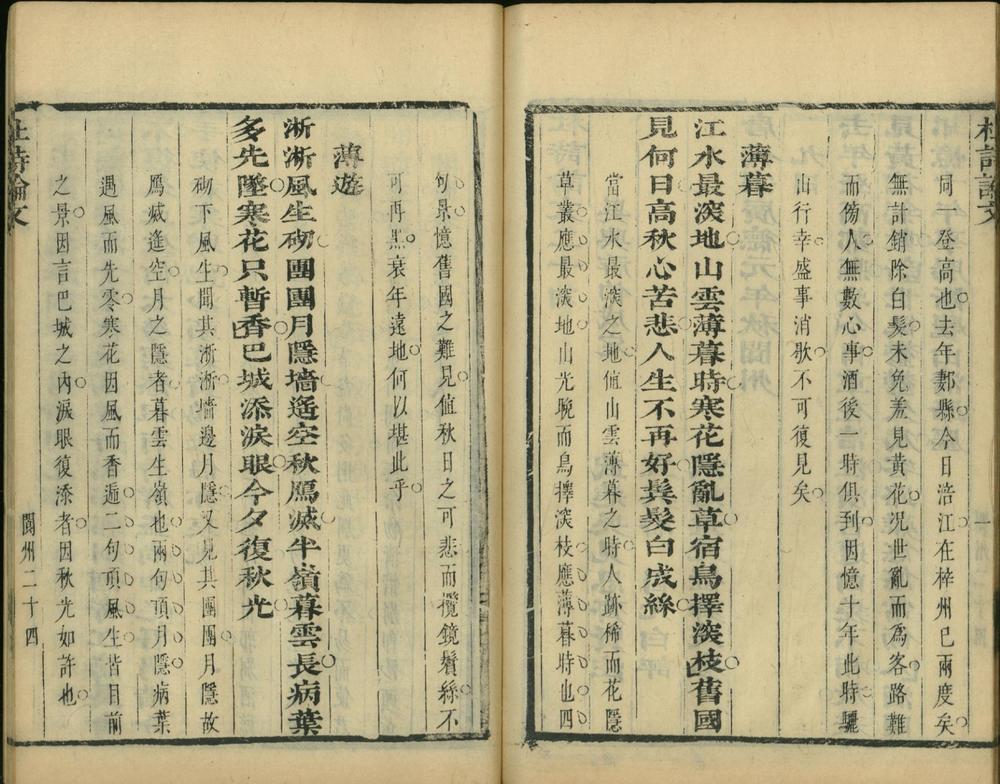 杜詩論文
同登高也去年郪縣今日涪江在梓州已兩度矣
無計銷除白髮未免羞見黃花況世亂而為客路難
而傍人無數心事酒後一時俱到因憶十年此時驪
山行幸盛事消歇不可復見矣
薄暮
江水最淡地山雲薄暮時寒花隱亂草宿鳥擇淡枝舊國
見何日高秋心苦悲人生不再好鬢髮白成絲
當江水最淡之地值山雲薄暮之時人跡稀而花隱
草叢應最淡地山光晚而鳥擇淡枝應薄暮時也四
句景憶舊國之難見值秋日之可悲而攬鏡鬢絲不
可再黑衰年遠地何以堪此乎
薄遊
淅淅風生砌團團月隱墻遙空秋鴈滅半嶺暮雲長病葉
多先墜寒花只暫香巴城添淚眼今夕復秋光
砌下風生聞其淅淅墻邊月隱又見其團團月隱故
鴈滅遙空月之隱者暮雲生嶺也兩句頂月隱病葉
遇風而先零寒花因風而香遍二句頂風生皆目前
之景因言巴城之內淚眼復添者因秋光如許也
杜詩論文
閬州二十四